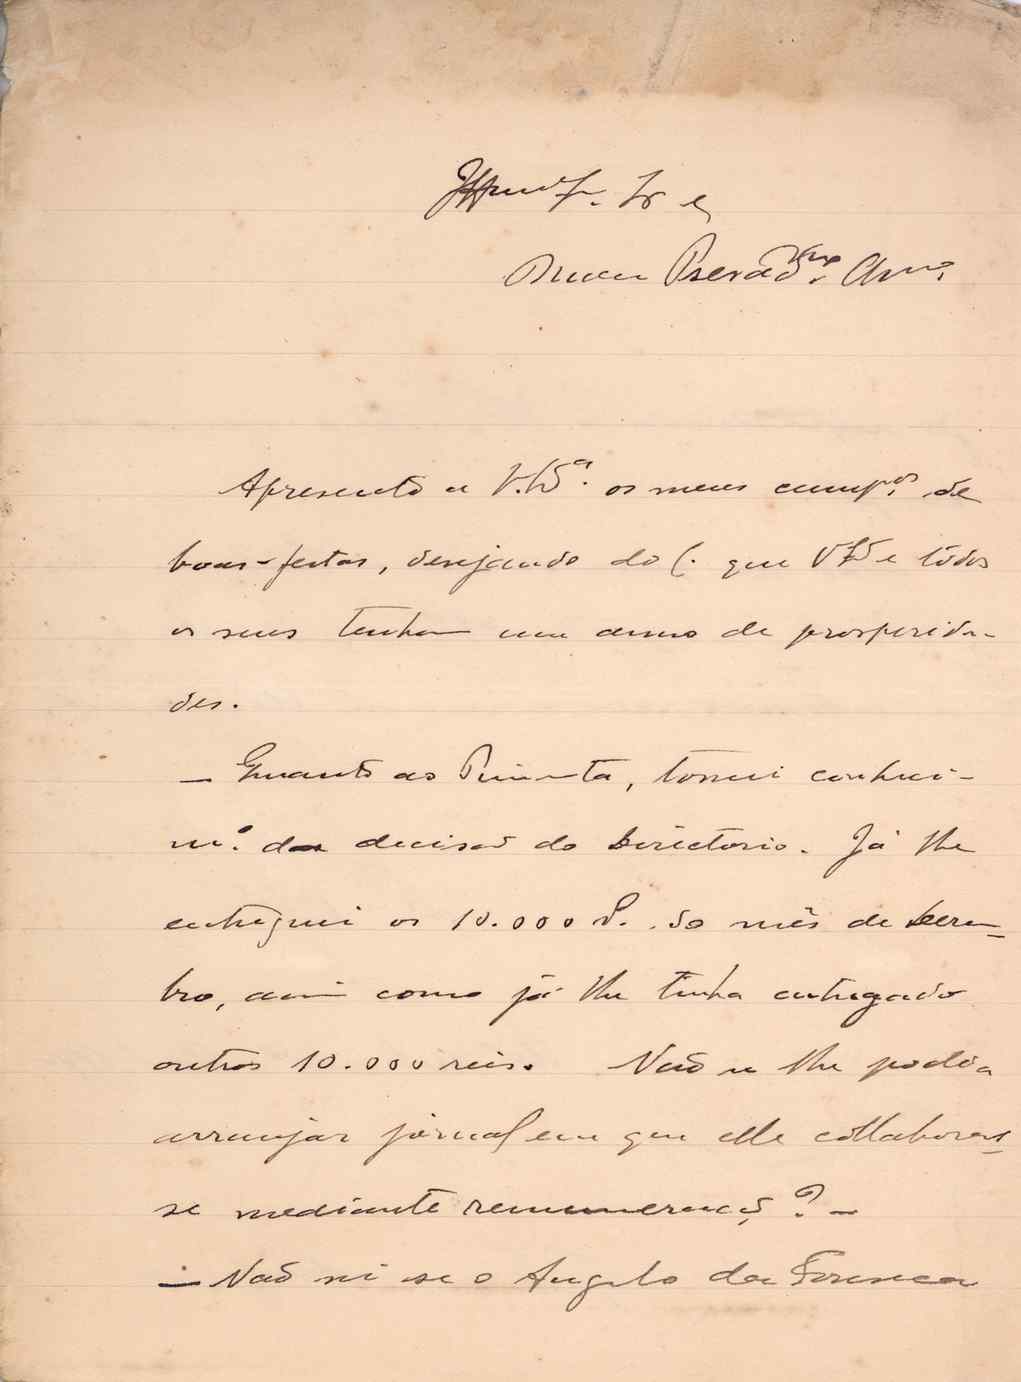 Sr e
meu Presad.mo Am.o
Apresento a V. Ex.ª os meus cump.os de
boas-festas, desejando do C. que V Ex e todos
os seus tenham um anno de prosperida-
des.
— Quanto ao Pimenta, tomei conheci-
m.o da decisão do Directorio. Já lhe
entreguei os 10.000 r. do mês de Dezem-
bro, assim como já lhe tinha entregado
outros 10.000 reis. Não se lhe podia
arranjar jornal em que elle collaboras-
se mediante remuneração? —
— Não sei se o Angelo da Fonseca